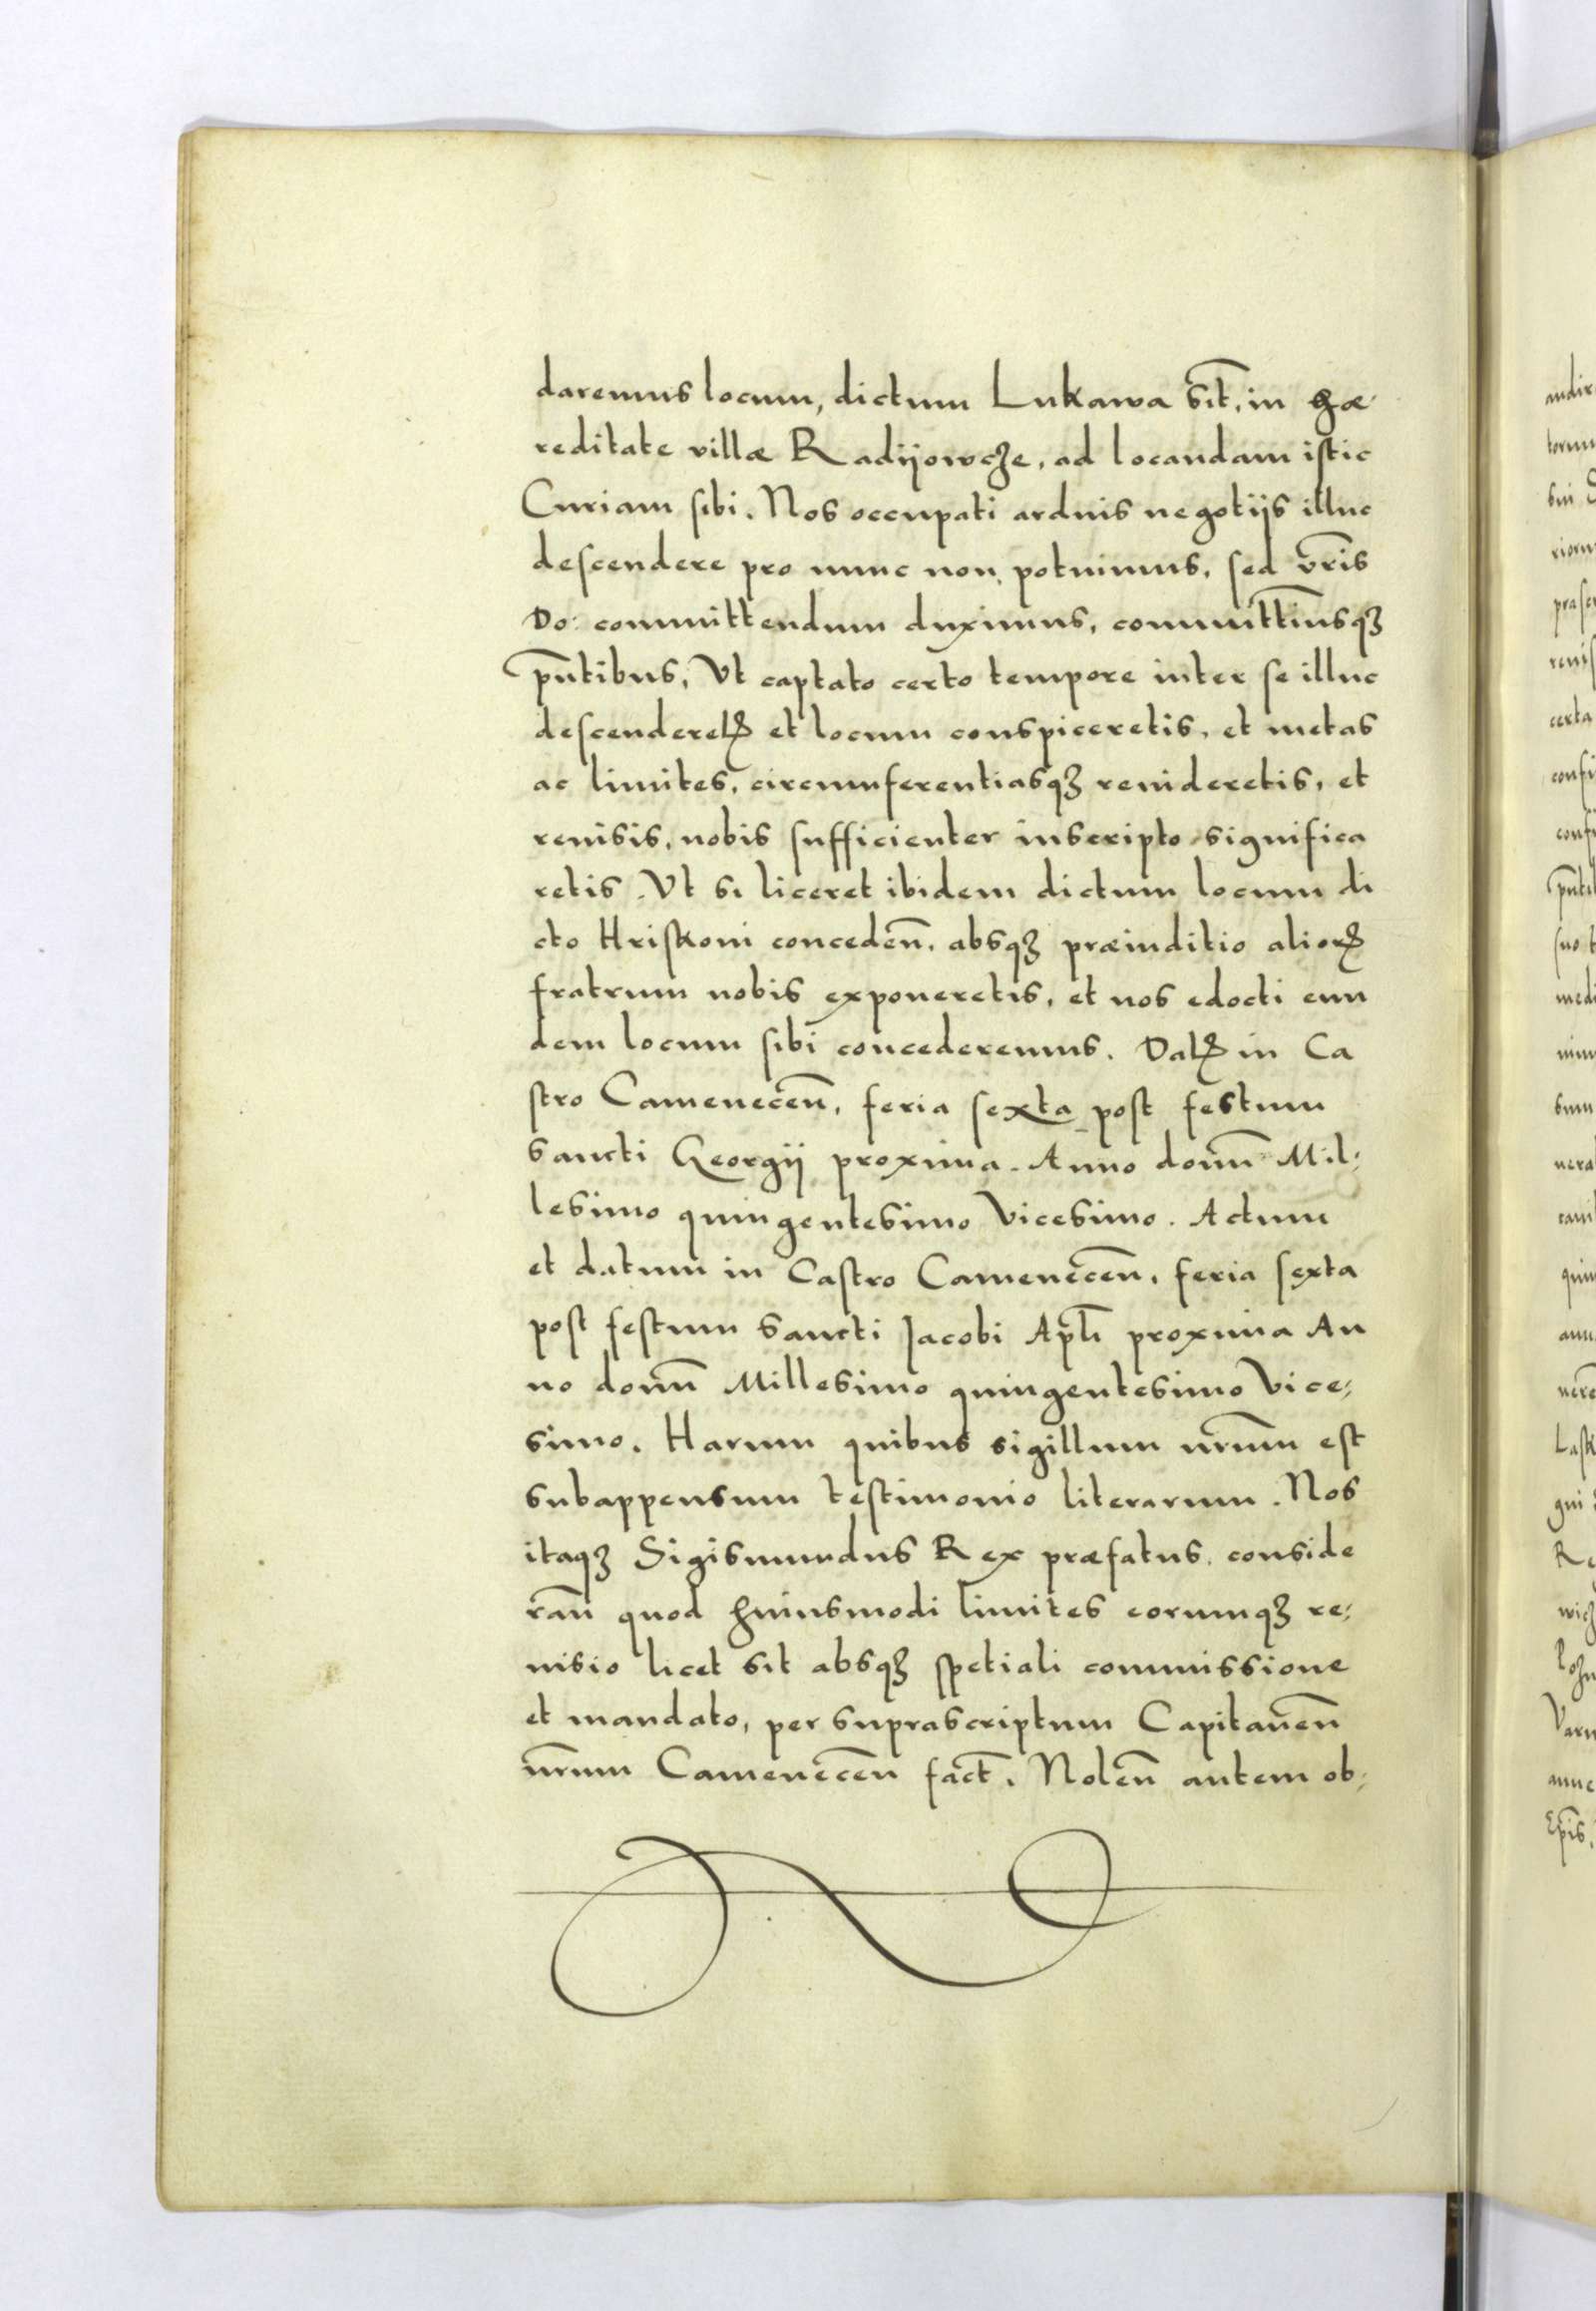 daremus locum, dictum Lukawa sit̄, in hæ-
reditate villæ Radijowcze, ad locandam istic
Curiam sibi. Nos occupati arduis negotijs illuc
descendere pro nunc non potuimus, sed vr̄is
Do: committendum duximus, committim̄usqꝫ
pn̄tibus, Vt captato certo tempore inter se illuc
descendereꝉꝝ et locum conspiceretis, et metas
ac limites, circumferentiasqꝫ reuideretis, et
reuisis, nobis sufficienter inscripto significa
retis. Vt si liceret ibidem dictum locum di
cto Hriskoni conceden̄, absqꝫ præiuditio alioꝝ
fratrum nobis exponeretis, et nos edocti eun
dem locum sibi concederemus. Datꝝ in Ca
stro Camenecen̄, feria sexta post festum
Sancti Georgij proxima. Anno domn̄ Mil-
lesimo quingentesimo Vicesimo. Actum
et datum in Castro Camenecen̄, feria sexta
post festum Sancti Jacobi Apl̄i proxima An
no domn̄ Millesimo quingentesimo Vice-
simo. Harum quibus sigillum nr̄um est
subappensum testimonio literarum. Nos
itaqꝫ Sigismundus Rex præfatus, conside
ran̄ quod huiusmodi limites eorumqꝫ re-
uisio licet sit absqꝫ spetiali commissione
et mandato, per suprascriptum Capitanen̄
nr̄um Camenecen̄ fact̄. Nolen̄ autem ob-